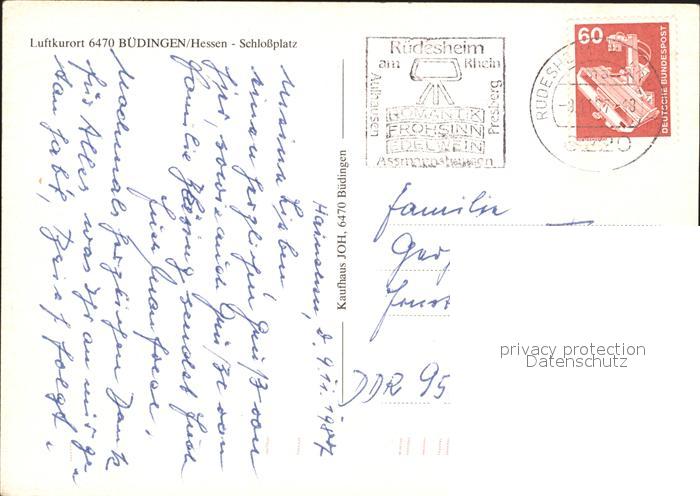 Luftkurort 6470 BÜDINGEN/Hessen - Schloßplatz
Rüdesheim
am Rhein
Aulhausen
Presberg
ROMANTIK
FROHSINN
EDELWEIN
Assmannshausen
60
DEUTSCHE BUNDESPOST
Kaufhaus JOH, 6470 Büdingen
d. 9.11.1987
Meine Lieben
einen herzlichen Gruß von
hier, sowie auch Grüße von
Familie sendet Euch
Nochmals herzlichen Dank
für Alles was Ihr an mir ge-
tan habt, Brief folgt.
Familie
DDR 95
privacy protection
Datenschutz